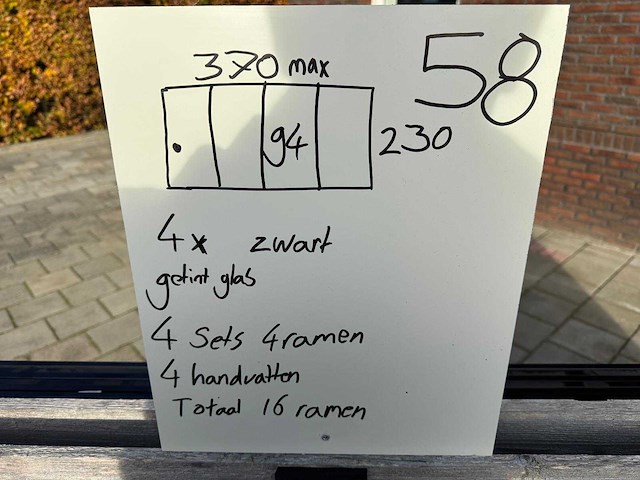 58
370 max
94
230
4x zwart
getint glas
4 Sets 4 ramen
4 handvatten
Totaal 16 ramen